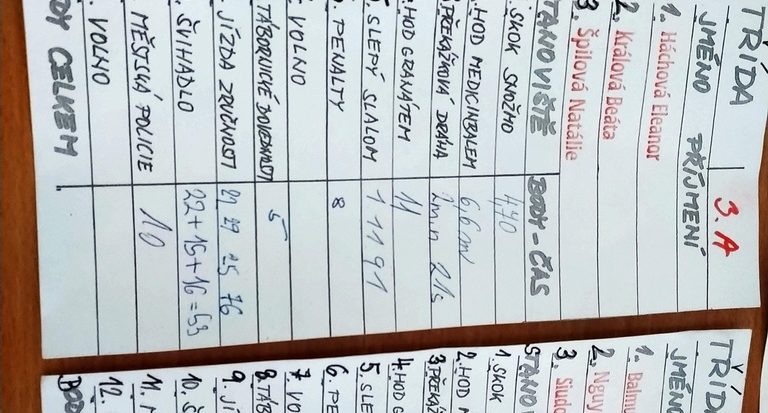 TŘÍDA 3.A
JMÉNO PŘÍJMENÍ
1. Háchová Eleanor
2. Králová Beáta
3. Špilová Natálie
STANOVIŠTĚ BODY-ČAS
1. SKOK SNOŽMO 470
2. HOD MEDICINBALEM
3. PŘEKÁŽKOVÁ DRÁHA 2min 21s
4. HOD GRANÁTEM 11
5. SLEPÝ SLALOM
6. PENALTY 8
7. VOLNO
TÁBORNICKÉ DOVEDNOSTI 5
JÍZDA ZRUČNOSTI
ŠVIHADLO 22+15+16=53
MĚSTSKÁ POLICIE 10
. VOLNO
DY CELKEM
TŘÍD
JMÉN
1. Balmu
2. Nguy
3. Siudo
STANO
1. SKOK
2. HOD M
3. PŘEKÁ
4. HOD G
5. SLE
6. PE
7. VO
8. TÁB
9. JÍ
10. Š
11. M
12.
BOD